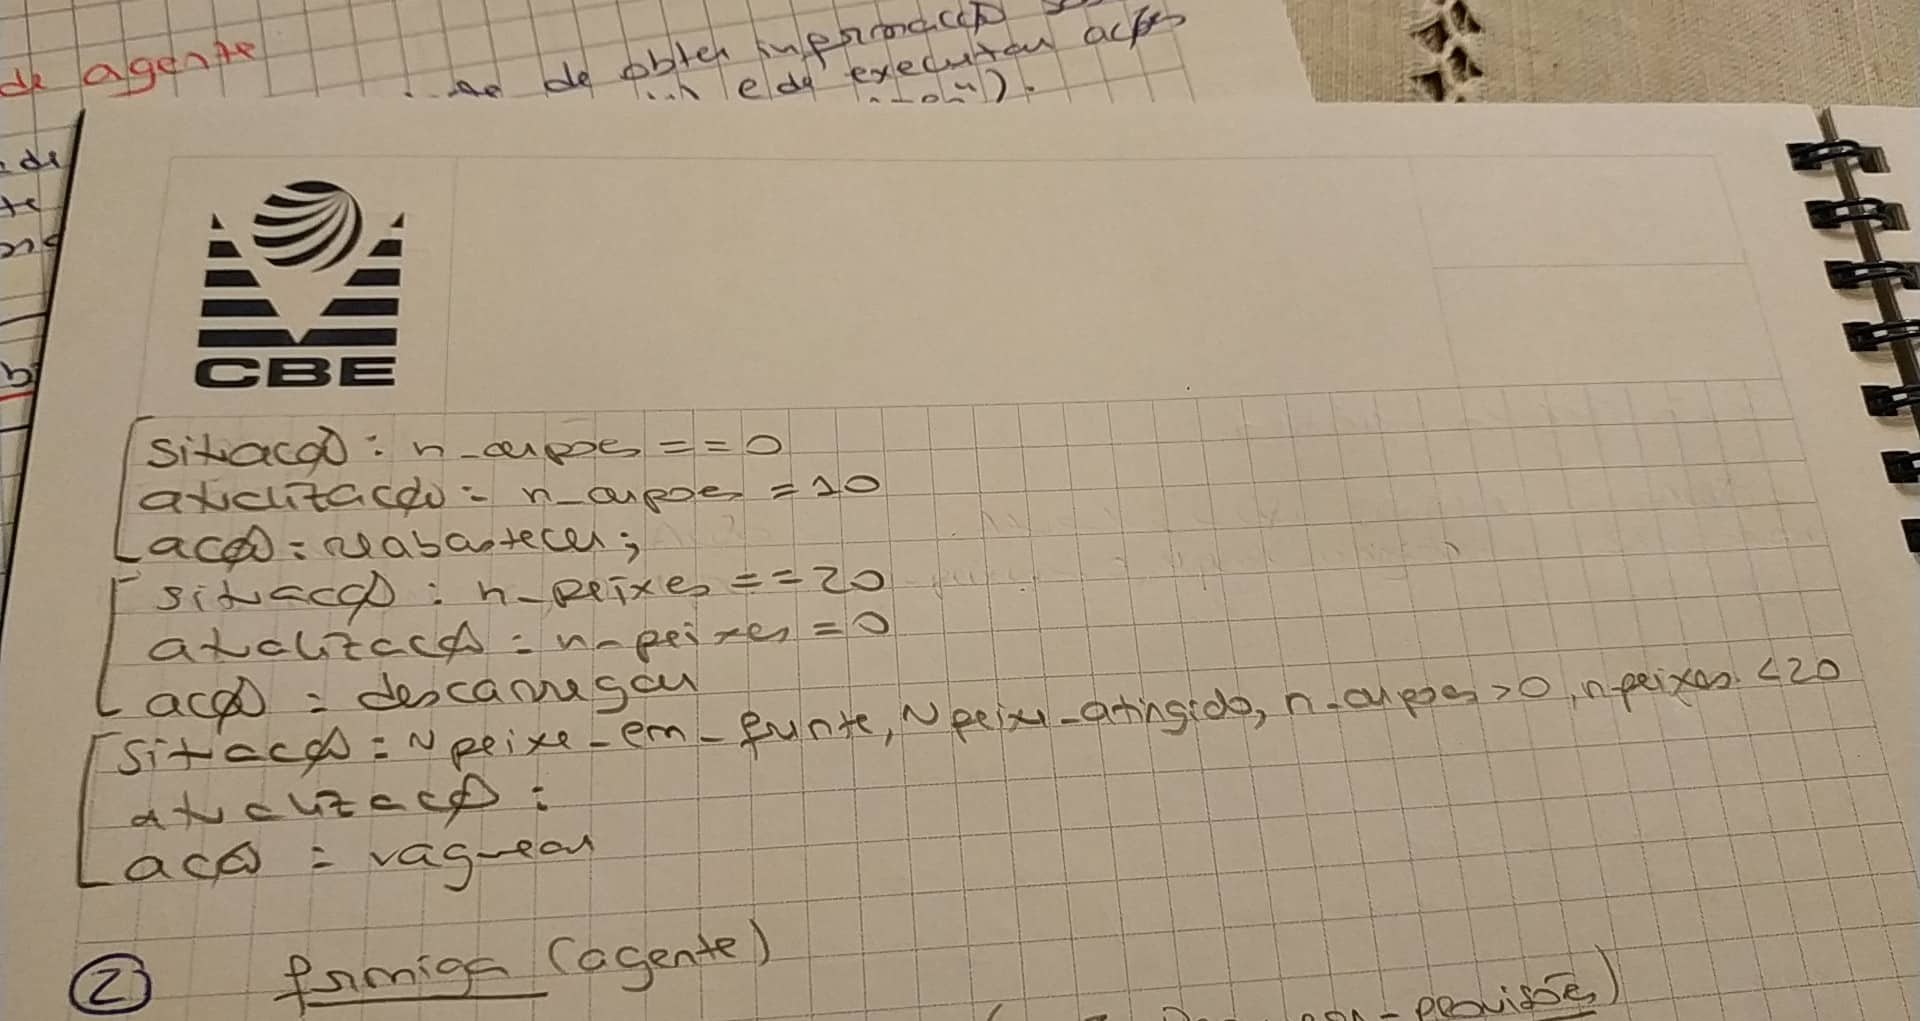 de agente
de obter informação
e de executar ações
de
te
CBE
situação: n_arpoes == 0
atualização: n_arpoes = 10
ação: reabastecer;
situação: n_peixes == 20
atualização: n_peixes = 0
ação: descarregar
situação: ~peixe_em_frente, ~peixe_atingido, n_arpoes > 0, n_peixes < 20
atualização:
ação: vaguear
2 formiga (agente)
provisões)